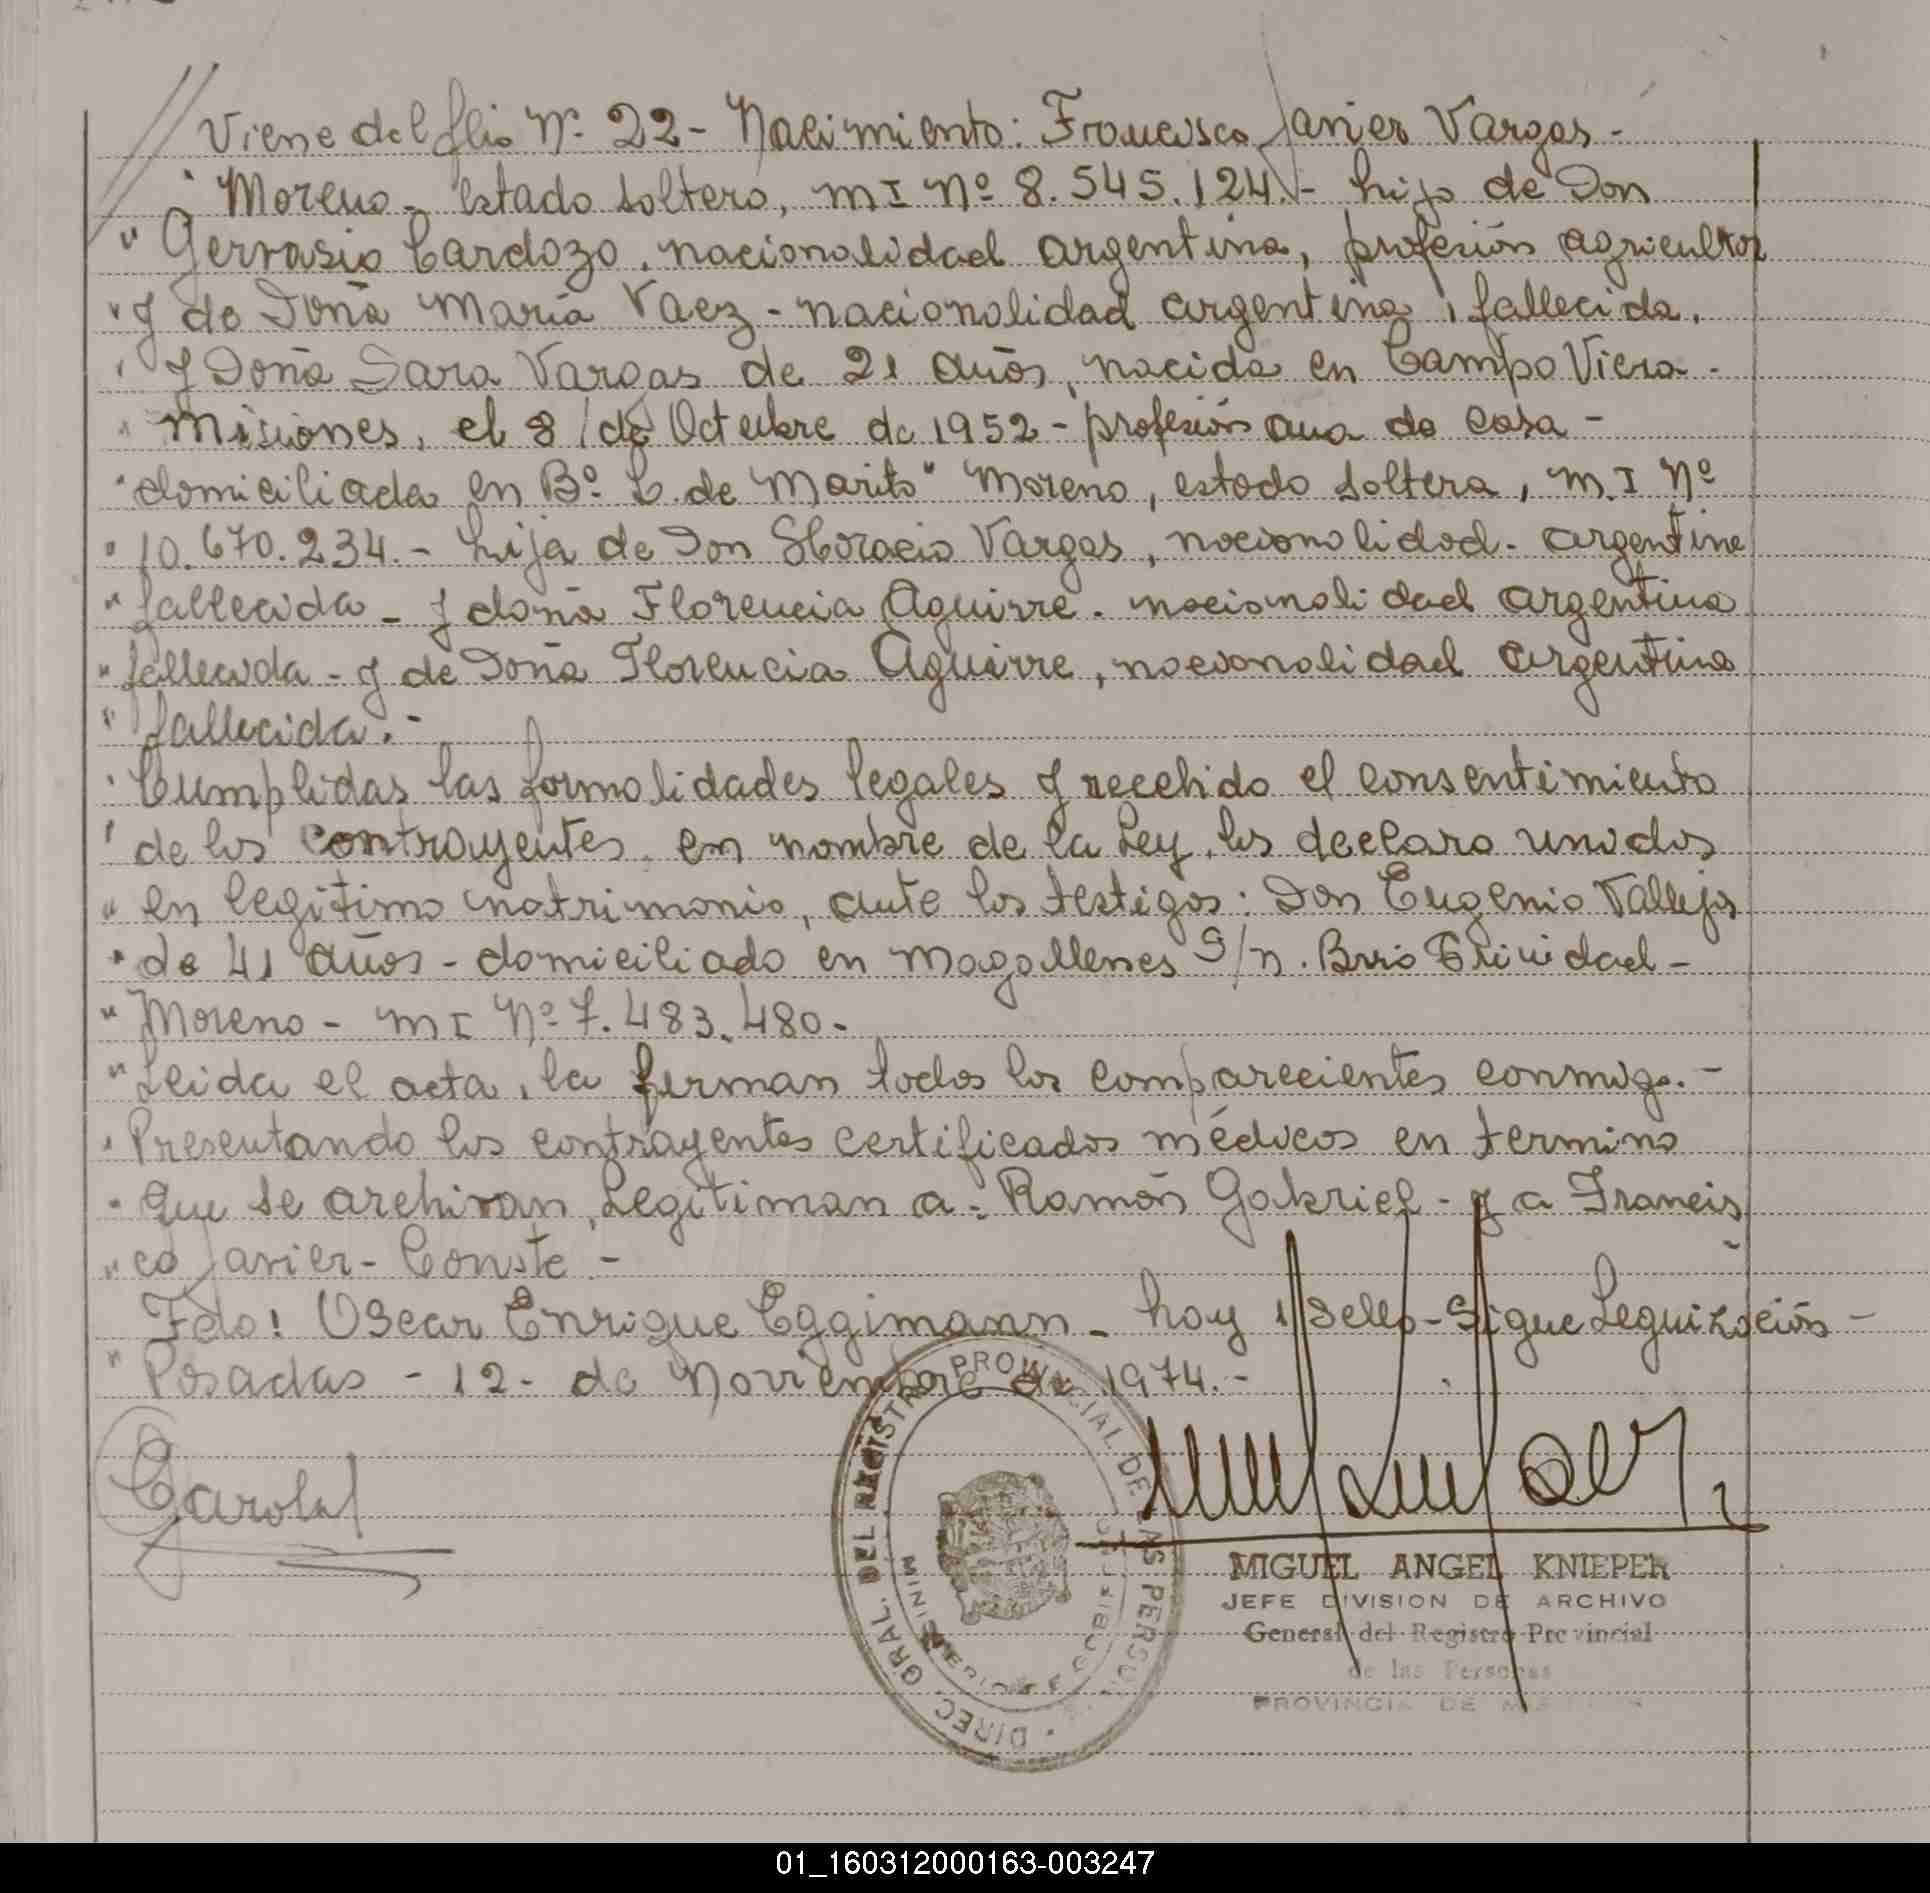 Viene del flio Nº 22 - Nacimiento: Francisco Javier Vargas -
" Moreno - Estado soltero, M I Nº 8.545.124 - hijo de Don
" Gervasio Cardozo, nacionalidad argentina, profesión agricultor
" y de Doña María Vaez - nacionalidad argentina, fallecida.
" y Doña Sara Vargas de 21 años, nacida en Campo Viera -
" Misiones, el 8 de Octubre de 1952 - profesión ama de casa -
" domiciliada en Bº. C. de Marito" Moreno, estado soltera, M. I Nº
" 10.670.234. - hija de Don Horacio Vargas, nacionalidad - argentina
" fallecida - y doña Florencia Aguirre - nacionalidad argentina
" fallecida - y de Doña Florencia Aguirre, nacionalidad argentina
" fallecida. -
" Cumplidas las formalidades legales y recebido el consentimiento
" de los contrayentes, en nombre de la Ley, los declaro unidos
" en legítimo matrimonio, ante los testigos: Don Eugenio Vallejos
" de 41 años - domiciliado en Magallenes S/n. Brrio Trinidad -
" Moreno - M I Nº 7.483.480 -
" Leida el acta, la firman todos los comparecientes conmigo. -
" Presentando los contrayentes certificados médicos en termino
" que se archivan, Legitiman a: Ramón Gabriel - y a Francis
" co Javier - Conste -
Fdo! Oscar Enrique Eggimann - hay 1 Sello - Sigue Leguización -
" Posadas - 12 - de Noviembre de 1974. -
DIREC. GRAL. DEL REGISTRO PROVINCIAL DE LAS PERSONAS
MIGUEL ANGEL KNIEPER
JEFE DIVISION DE ARCHIVO
General del Registro Provincial
de las Personas
PROVINCIA DE MISIONES
01_160312000163-003247